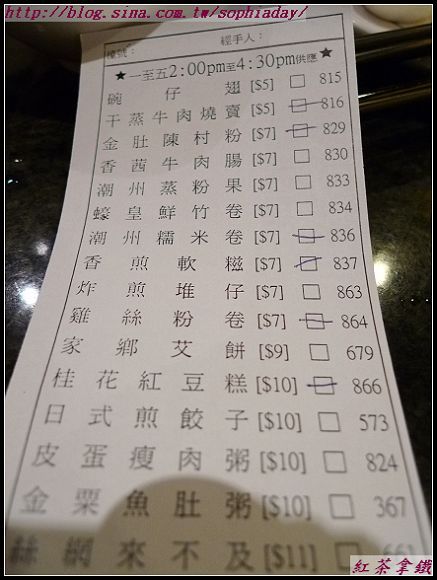 http://blog.sina.com.tw/sophiaday/
檯號： 經手人：
★一至五2:00pm至4:30pm供應★
碗仔翅 [$5] 815
干蒸牛肉燒賣 [$5] 816
金肚陳村粉 [$7] 829
香茜牛肉腸 [$7] 830
潮州蒸粉果 [$7] 833
蠔皇鮮竹卷 [$7] 834
潮州糯米卷 [$7] 836
香煎軟糍 [$7] 837
炸煎堆仔 [$7] 863
雞絲粉卷 [$7] 864
家鄉艾餅 [$9] 679
桂花紅豆糕 [$10] 866
日式煎餃子 [$10] 573
皮蛋瘦肉粥 [$10] 824
金粟魚肚粥 [$10] 367
絲網來不及 [$11]
紅茶拿鐵